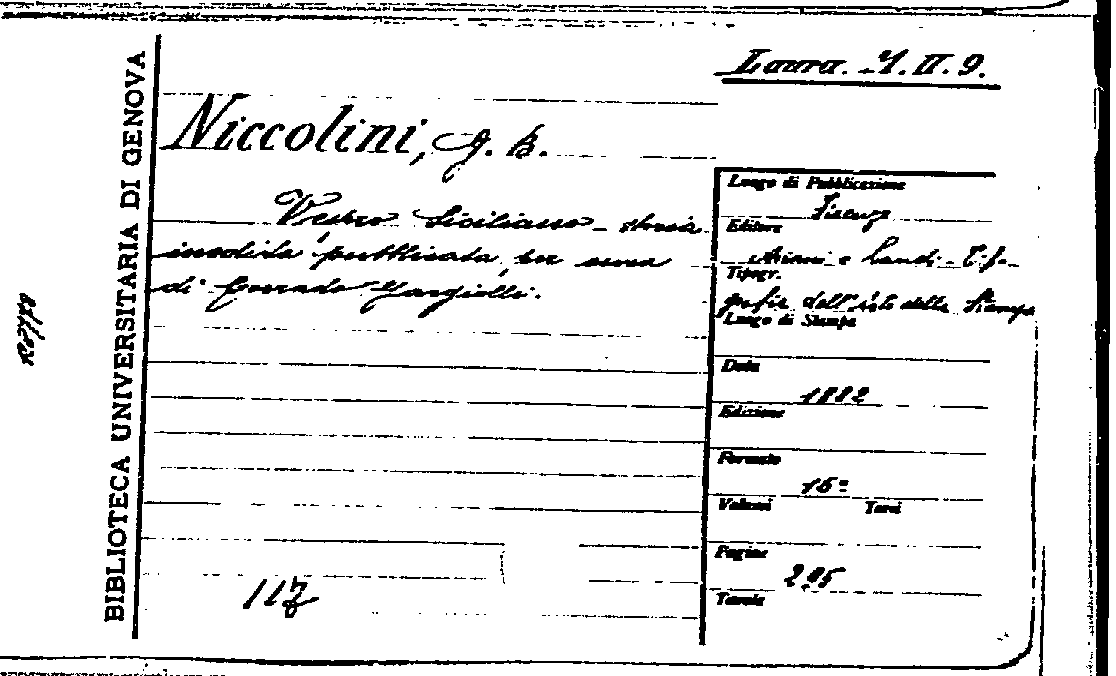 Laura. 1. II. 9.
BIBLIOTECA UNIVERSITARIA DI GENOVA
Niccolini, G. B.
Vespro Siciliano - storia
inedita pubblicata per cura
di Corrado Gargiolli.
117
Luogo di Pubblicazione
Firenze
Editore
e Landi - Ti-
Tipogr.
pografia dell'arte della Stampa
Luogo di Stampa
Data
1882
Edizione
Formato
16º
Volumi Tomi
Pagine
295
Tavole